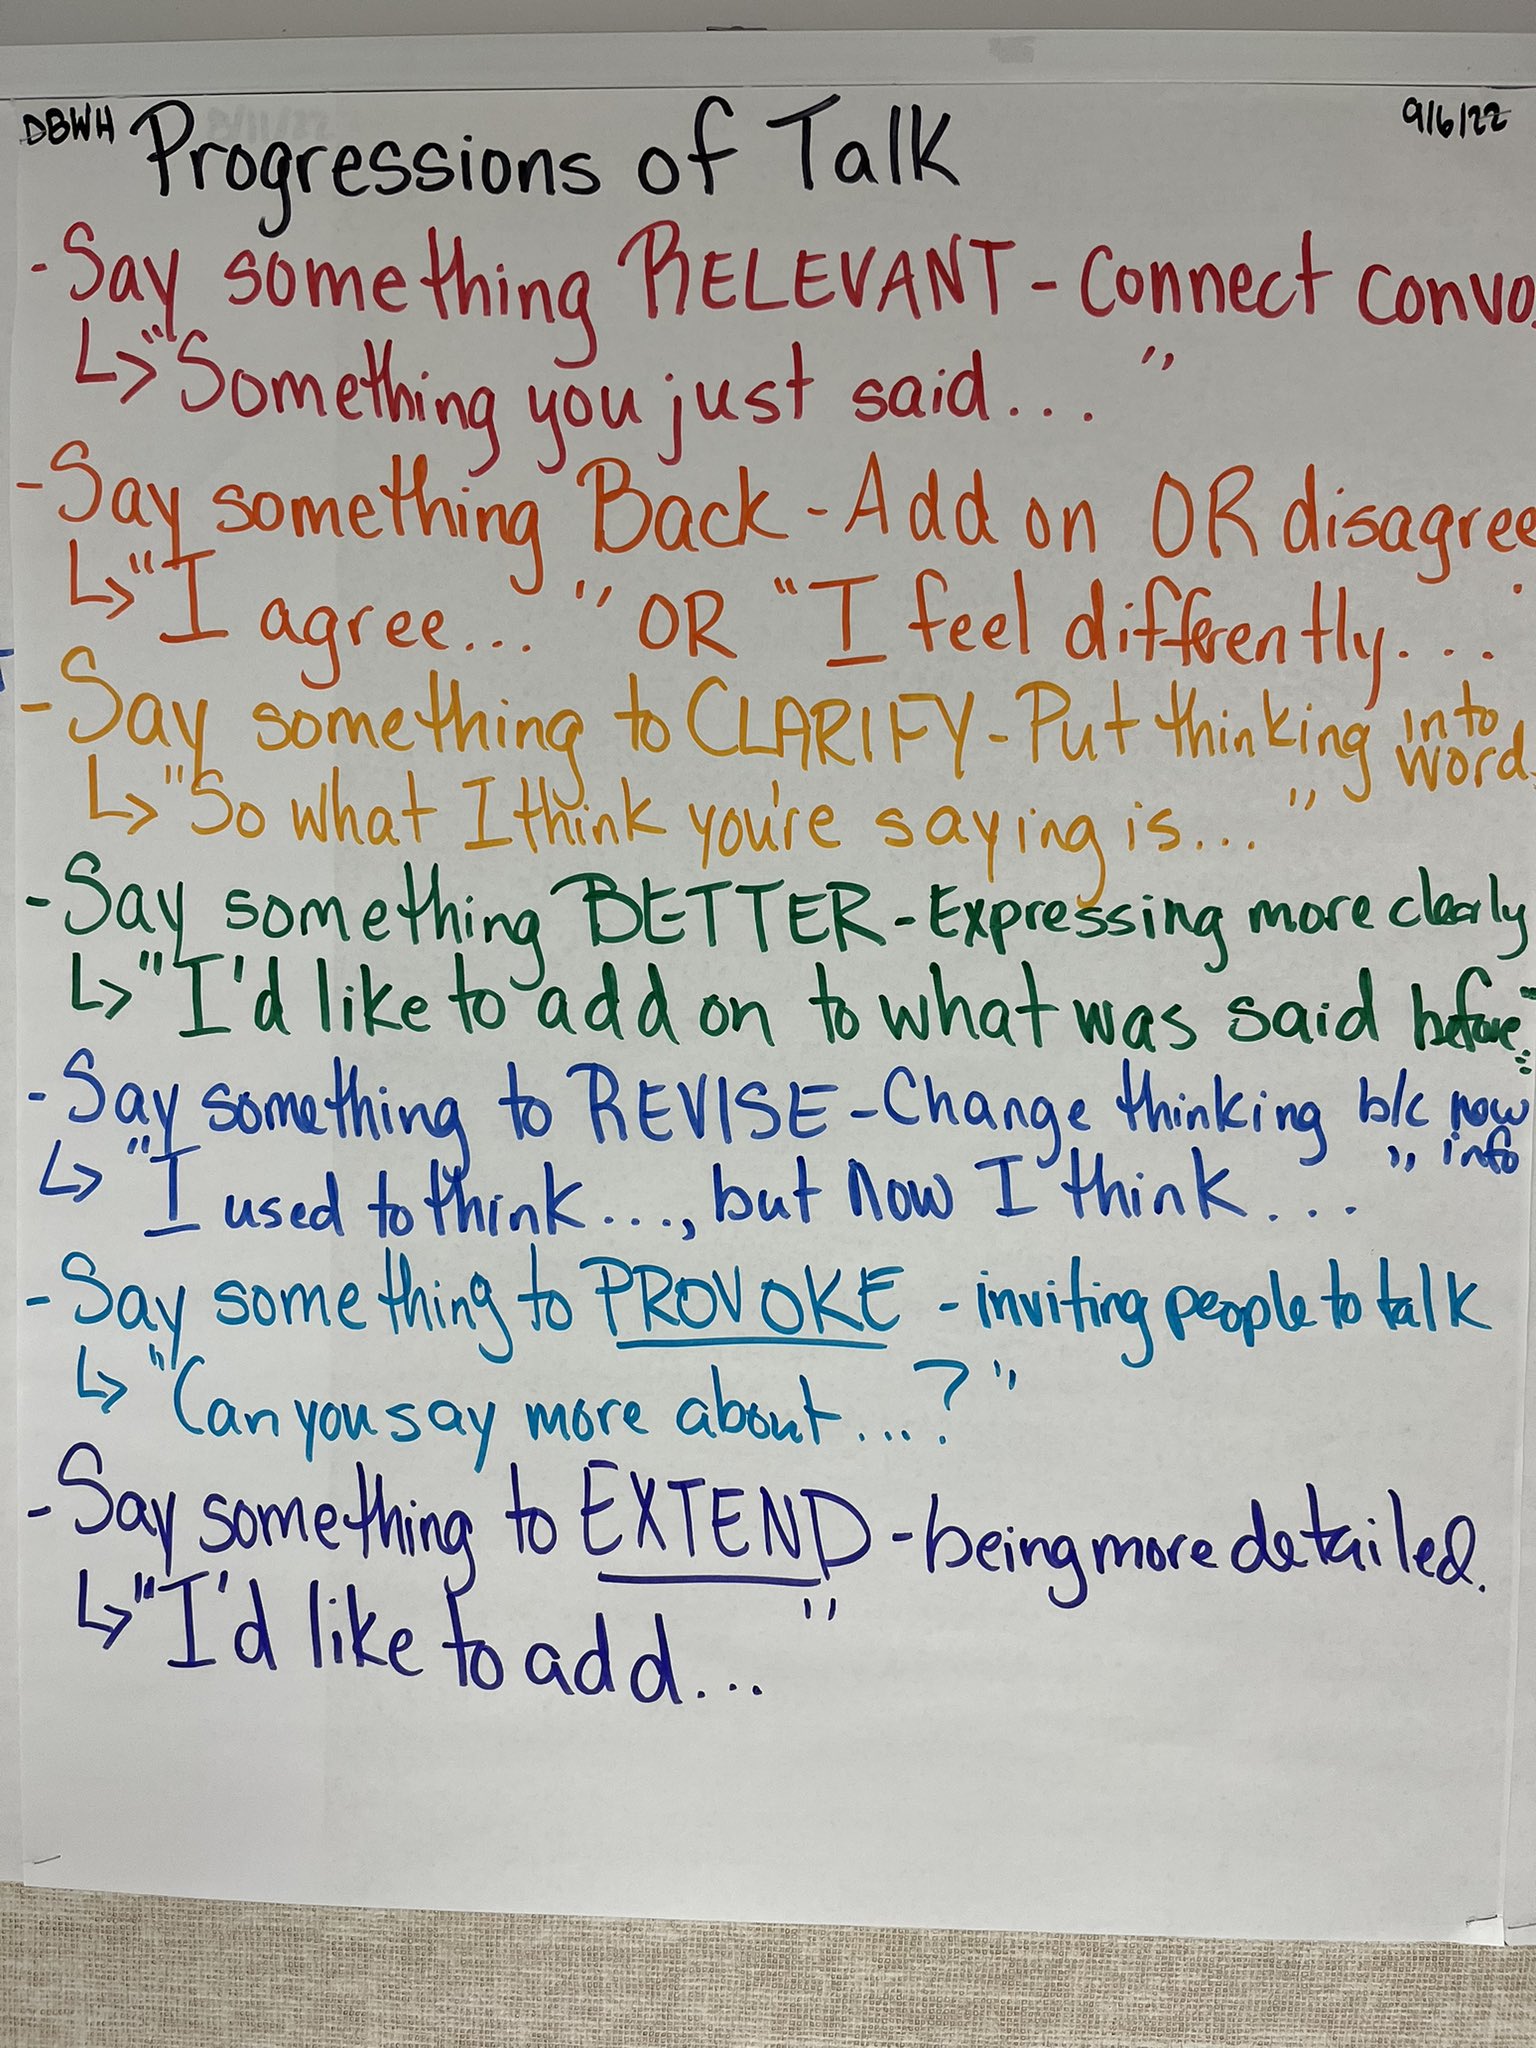 DBWH Progressions of Talk 9/6/22
- Say something RELEVANT - Connect convo.
↳ "Something you just said... "
- Say something Back - Add on OR disagree
↳ "I agree... " OR "I feel differently...
- Say something to CLARIFY - Put thinking into word
↳ "So what I think you're saying is... "
- Say something BETTER - Expressing more clearly
↳ "I'd like to add on to what was said before...
- Say something to REVISE - Change thinking b/c now info
↳ "I used to think..., but now I think... "
- Say something to PROVOKE - inviting people to talk
↳ "Can you say more about...? "
- Say something to EXTEND - being more detailed.
↳ "I'd like to add... "